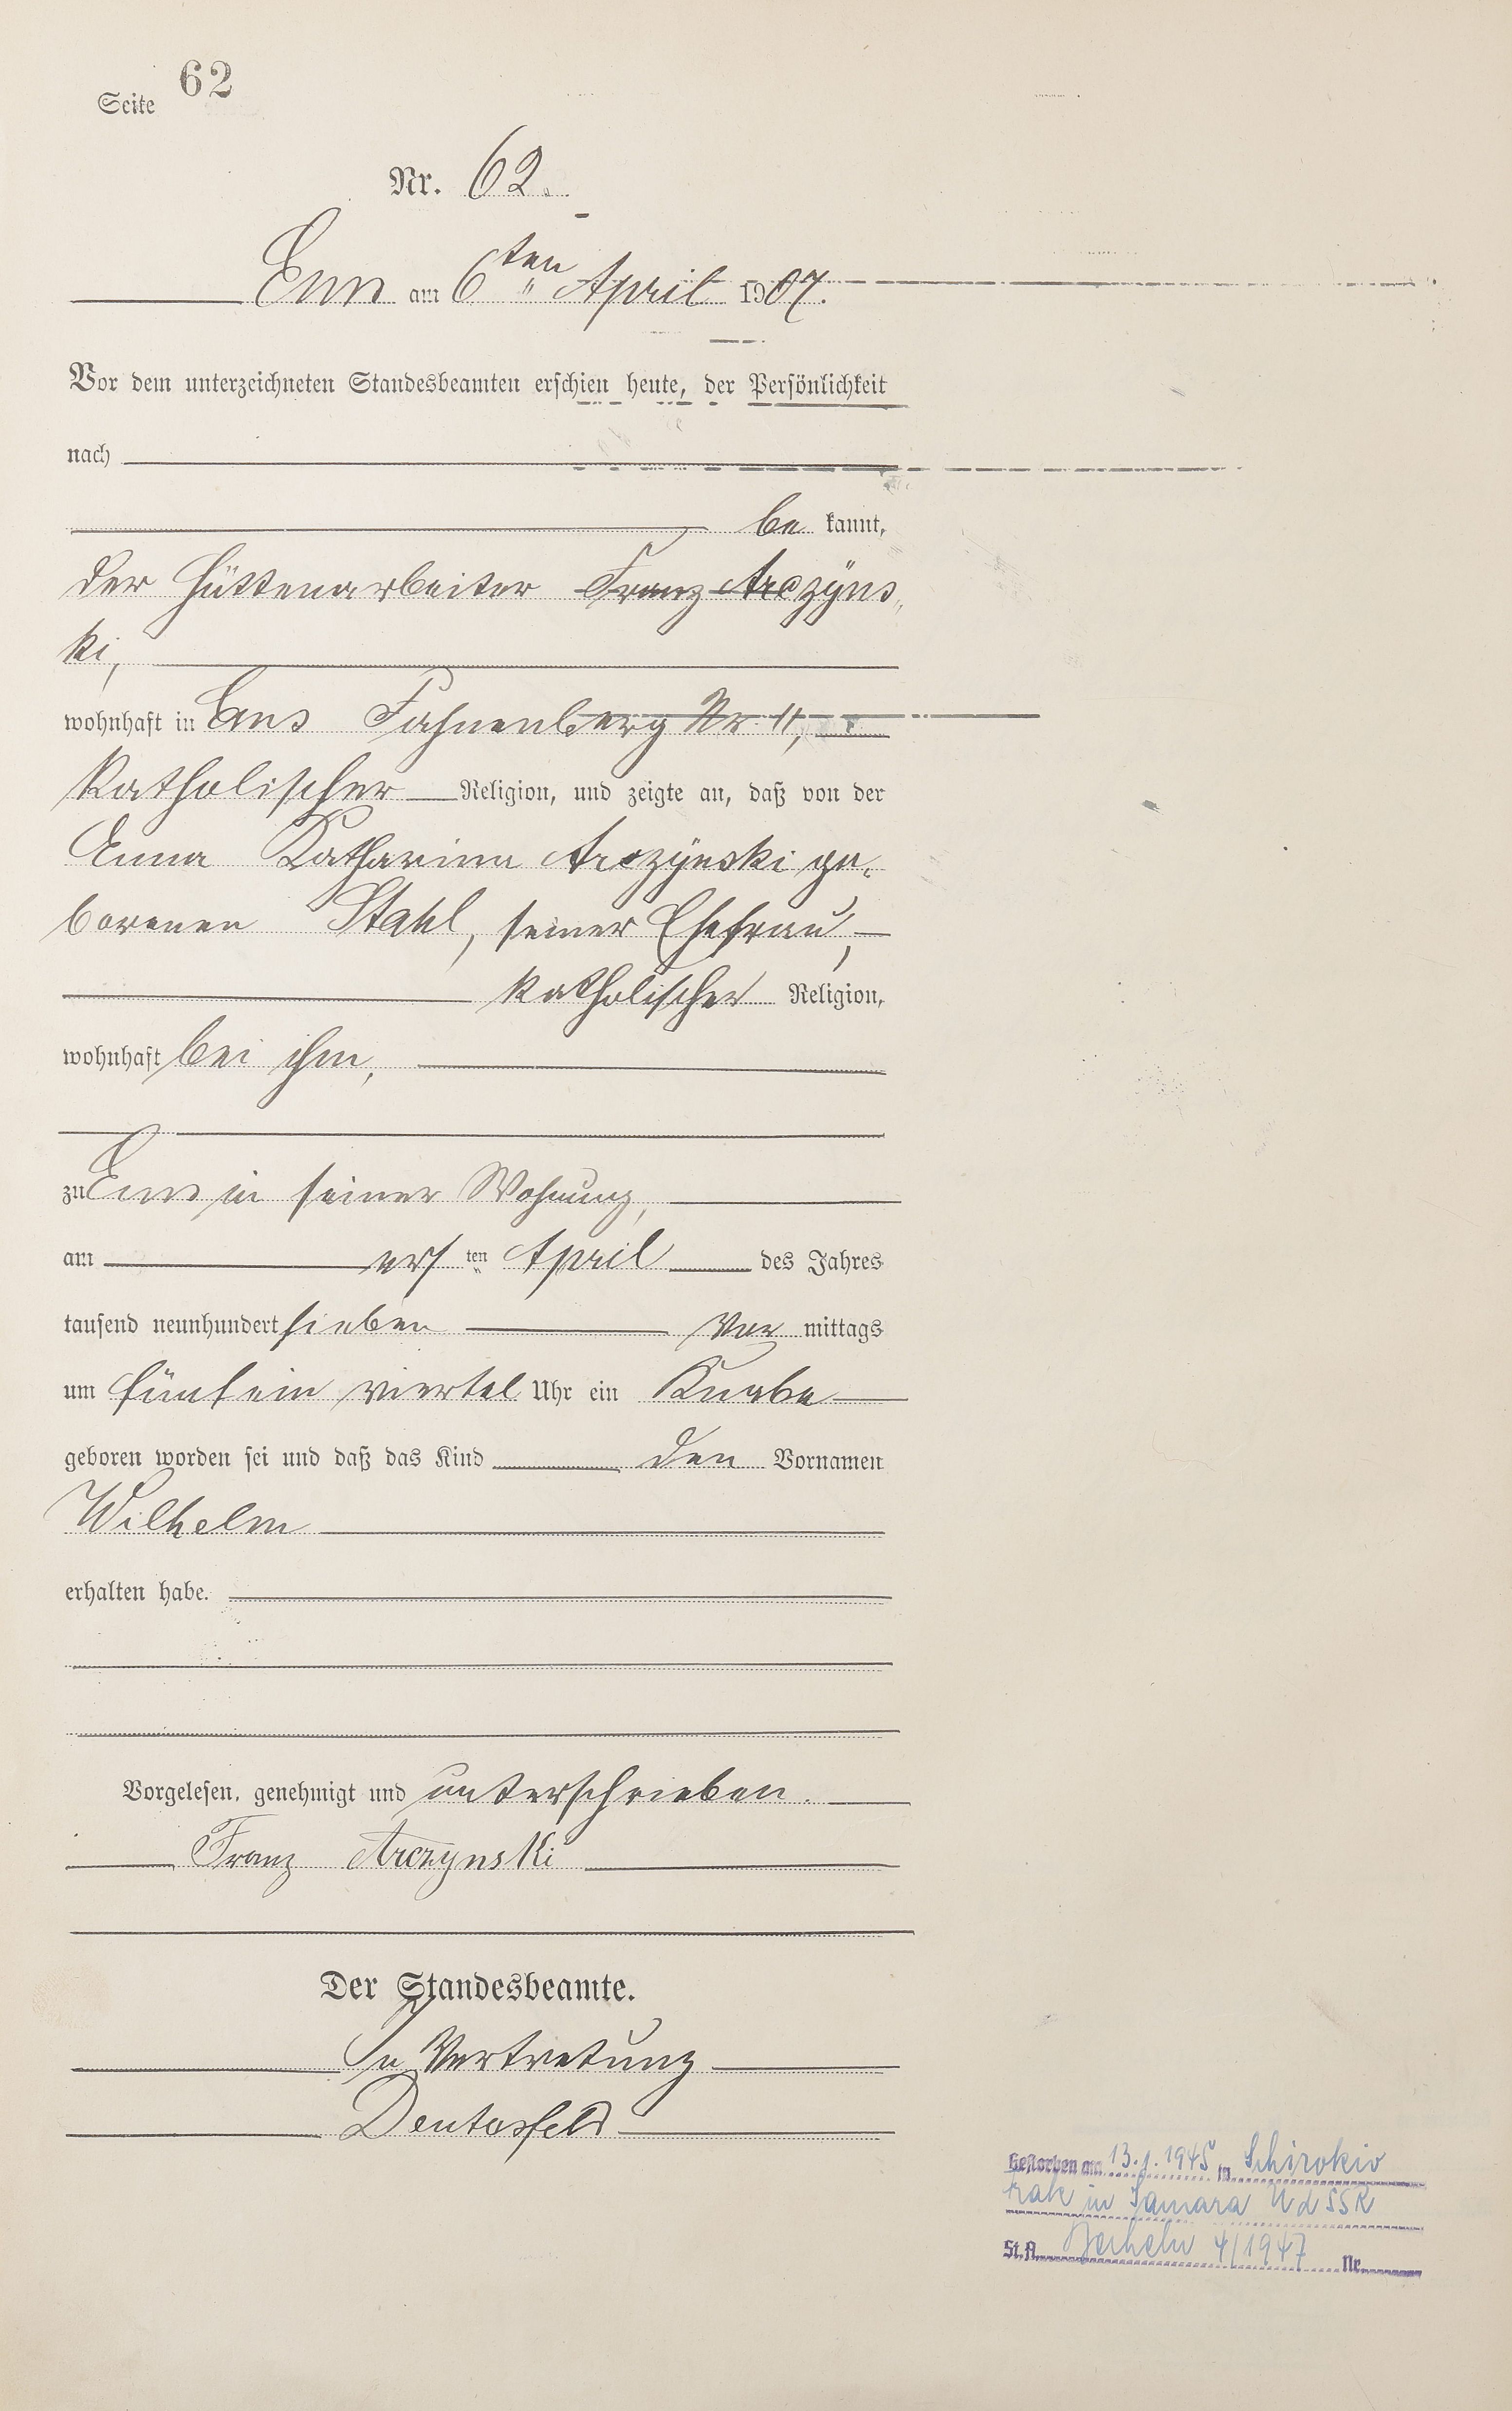 Seite 62
Nr. 62.
Ems am 6ten April 1907.
Vor dem unterzeichneten Standesbeamten erschien heute, der Persönlichkeit
nach
be kannt,
der Hüttenarbeiter Franz Arczÿns-
ki,
wohnhaft in Ems Fahnenberg Nr 11,
katholischer Religion, und zeigte an, daß von der
Anna Katharina Arczÿnski ge-
borenen Stahl, seiner Ehefrau,
katholischer Religion,
wohnhaft bei ihm,
zu Ems in seiner Wohnung,
am ersten April des Jahres
tausend neunhundert sieben Vor mittags
um fünf ein viertel Uhr ein Knabe
geboren worden sei und daß das Kind den Vornamen
Wilhelm
erhalten habe.
Vorgelesen, genehmigt und unterschrieben.
Franz Arczynski
Der Standesbeamte.
In Vertretung
Gestorben am 13.1.1945 in Schirokio
in Samara UdSSR
St.A. 4/1947 Nr.